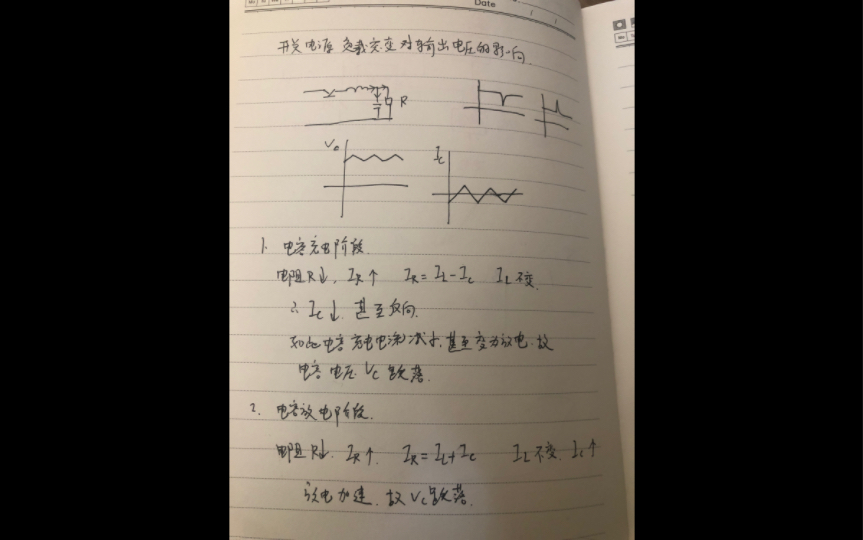 Date
开关电源 负载突变对输出电压的影响
R
V₀
I_c
1. 电容充电阶段.
电阻R↓, I_R↑ I_R = I_L - I_c I_L 不变.
∴ I_c↓, 甚至反向.
如此电容充电电流减小, 甚至变为放电, 故
电容电压 V_c 跌落.
2. 电容放电阶段.
电阻R↓. I_R↑. I_R = I_L + I_c I_L 不变. I_c↑
放电加速. 故 V_c 跌落.